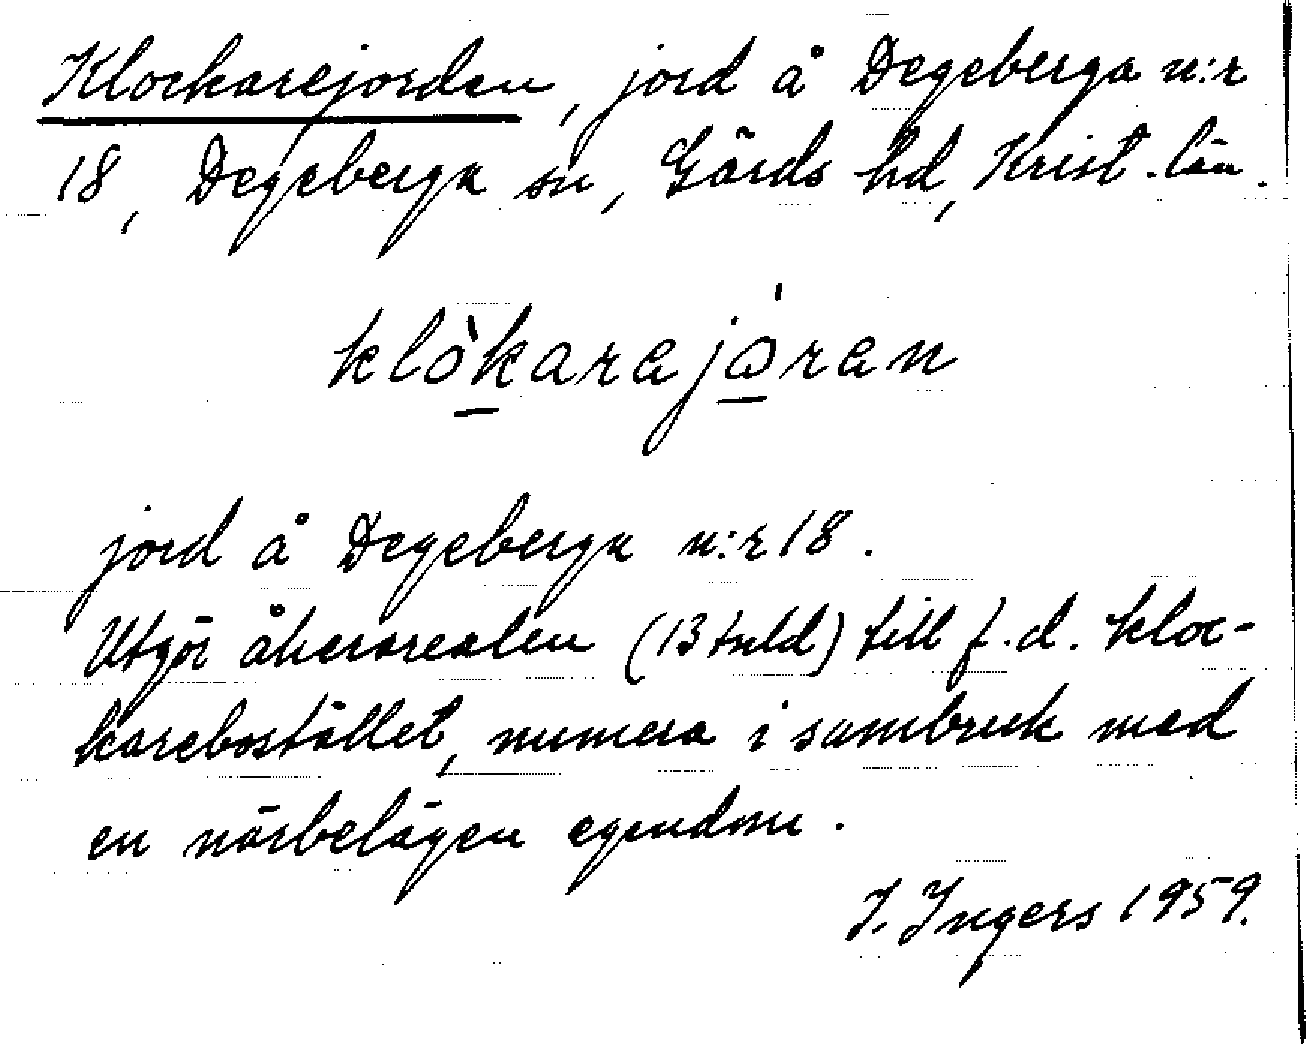 Klockarejorden, jord å Degeberga n:r
18, Degeberga sn, Gärds hd, Krist. län.
klòkarajóran
jord å Degeberga n:r 18.
Utgör åkerarealen (13 tnld) till f.d. kloc-
karebostället, numera i sambruk med
en närbelägen egendom.
I. Ingers 1959.